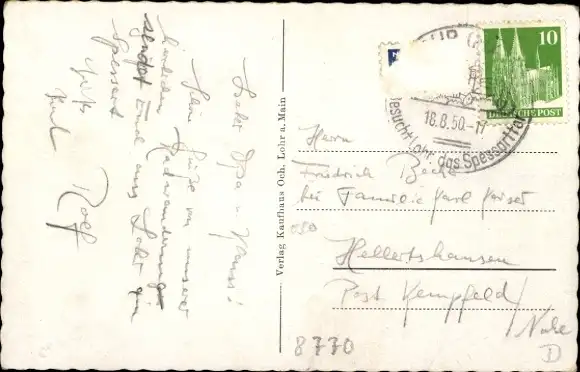 Lieber Opa u. Klaus!
Viele Grüße von unserer
Radwanderung
sendet Euch aus Lohr im
Spessart
Rolf
Verlag Kaufhaus Och, Lohr a. Main
10
DEUTSCHE POST
18.8.50.-17
Besucht Lohr das Spessarttor
Herrn
Friedrich
bei Familie Karl
Hellertshausen
Post Kempfeld/
Nahe
8770
D